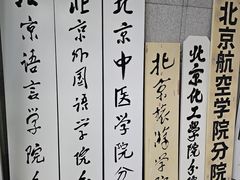 北京语言学院分
北京外国语学院分
北京中医学院分
北京旅游学院
北京化工学院分
北京航空学院分院